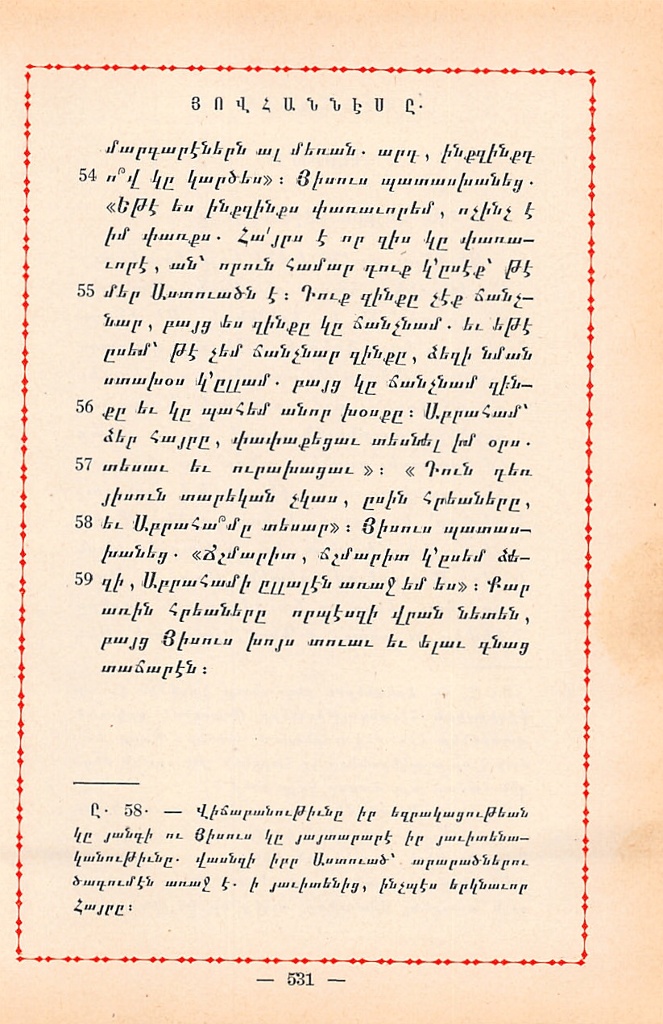 ՅՈՎՀԱՆՆԷՍ Ը․
մարգարէներն ալ մեռան․ արդ, ինքզինքդ
54 ո՞վ կը կարծես»։ Յիսուս պատասխանեց․
«Եթէ ես ինքզինքս փառաւորեմ, ոչինչ է
իմ փառքս․ Հա՛յրս է որ զիս կը փառա—
ւորէ, ան՝ որուն համար դուք կ՚ըսէք՝ թէ
55 մեր Աստուածն է։ Դուք զինքը չէք ճանչ—
նար, բայց ես զինքը կը ճանչնամ․ եւ եթէ
ըսեմ՝ թէ չեմ ճանչնար զինքը, ձեզի նման
ստախօս կ՚ըլլամ․ բայց կը ճանչնամ զին—
56 քը եւ կը պահեմ անոր խօսքը։ Աբրահամ՝
ձեր Հայրը, փափաքեցաւ տեսնել իմ օրս․
57 տեսաւ եւ ուրախացաւ»։ «Դուն դեռ
յիսուն տարեկան չկաս, ըսին Հրեաները,
58 եւ Աբրահա՞մը տեսար»։ Յիսուս պատաս—
խանեց․ «Ճշմարիտ, ճշմարիտ կ՚ըսեմ ձե—
59 զի, Աբրահամի ըլլալէն առաջ եմ ես»։ Քար
առին Հրեաները որպէսզի վրան նետեն,
բայց Յիսուս խոյս տուաւ եւ ելաւ գնաց
տաճարէն։
Ը․ 58․ — Վիճաբանութիւնը իր եզրակացութեան
կը յանգի ու Յիսուս կը յայտարարէ իր յաւիտենա—
կանութիւնը․ վասնզի իբր Աստուած՝ արարածներու
ծագումէն առաջ է․ ի յաւիտենից, ինչպէս երկնաւոր
Հայրը։
— 531 —